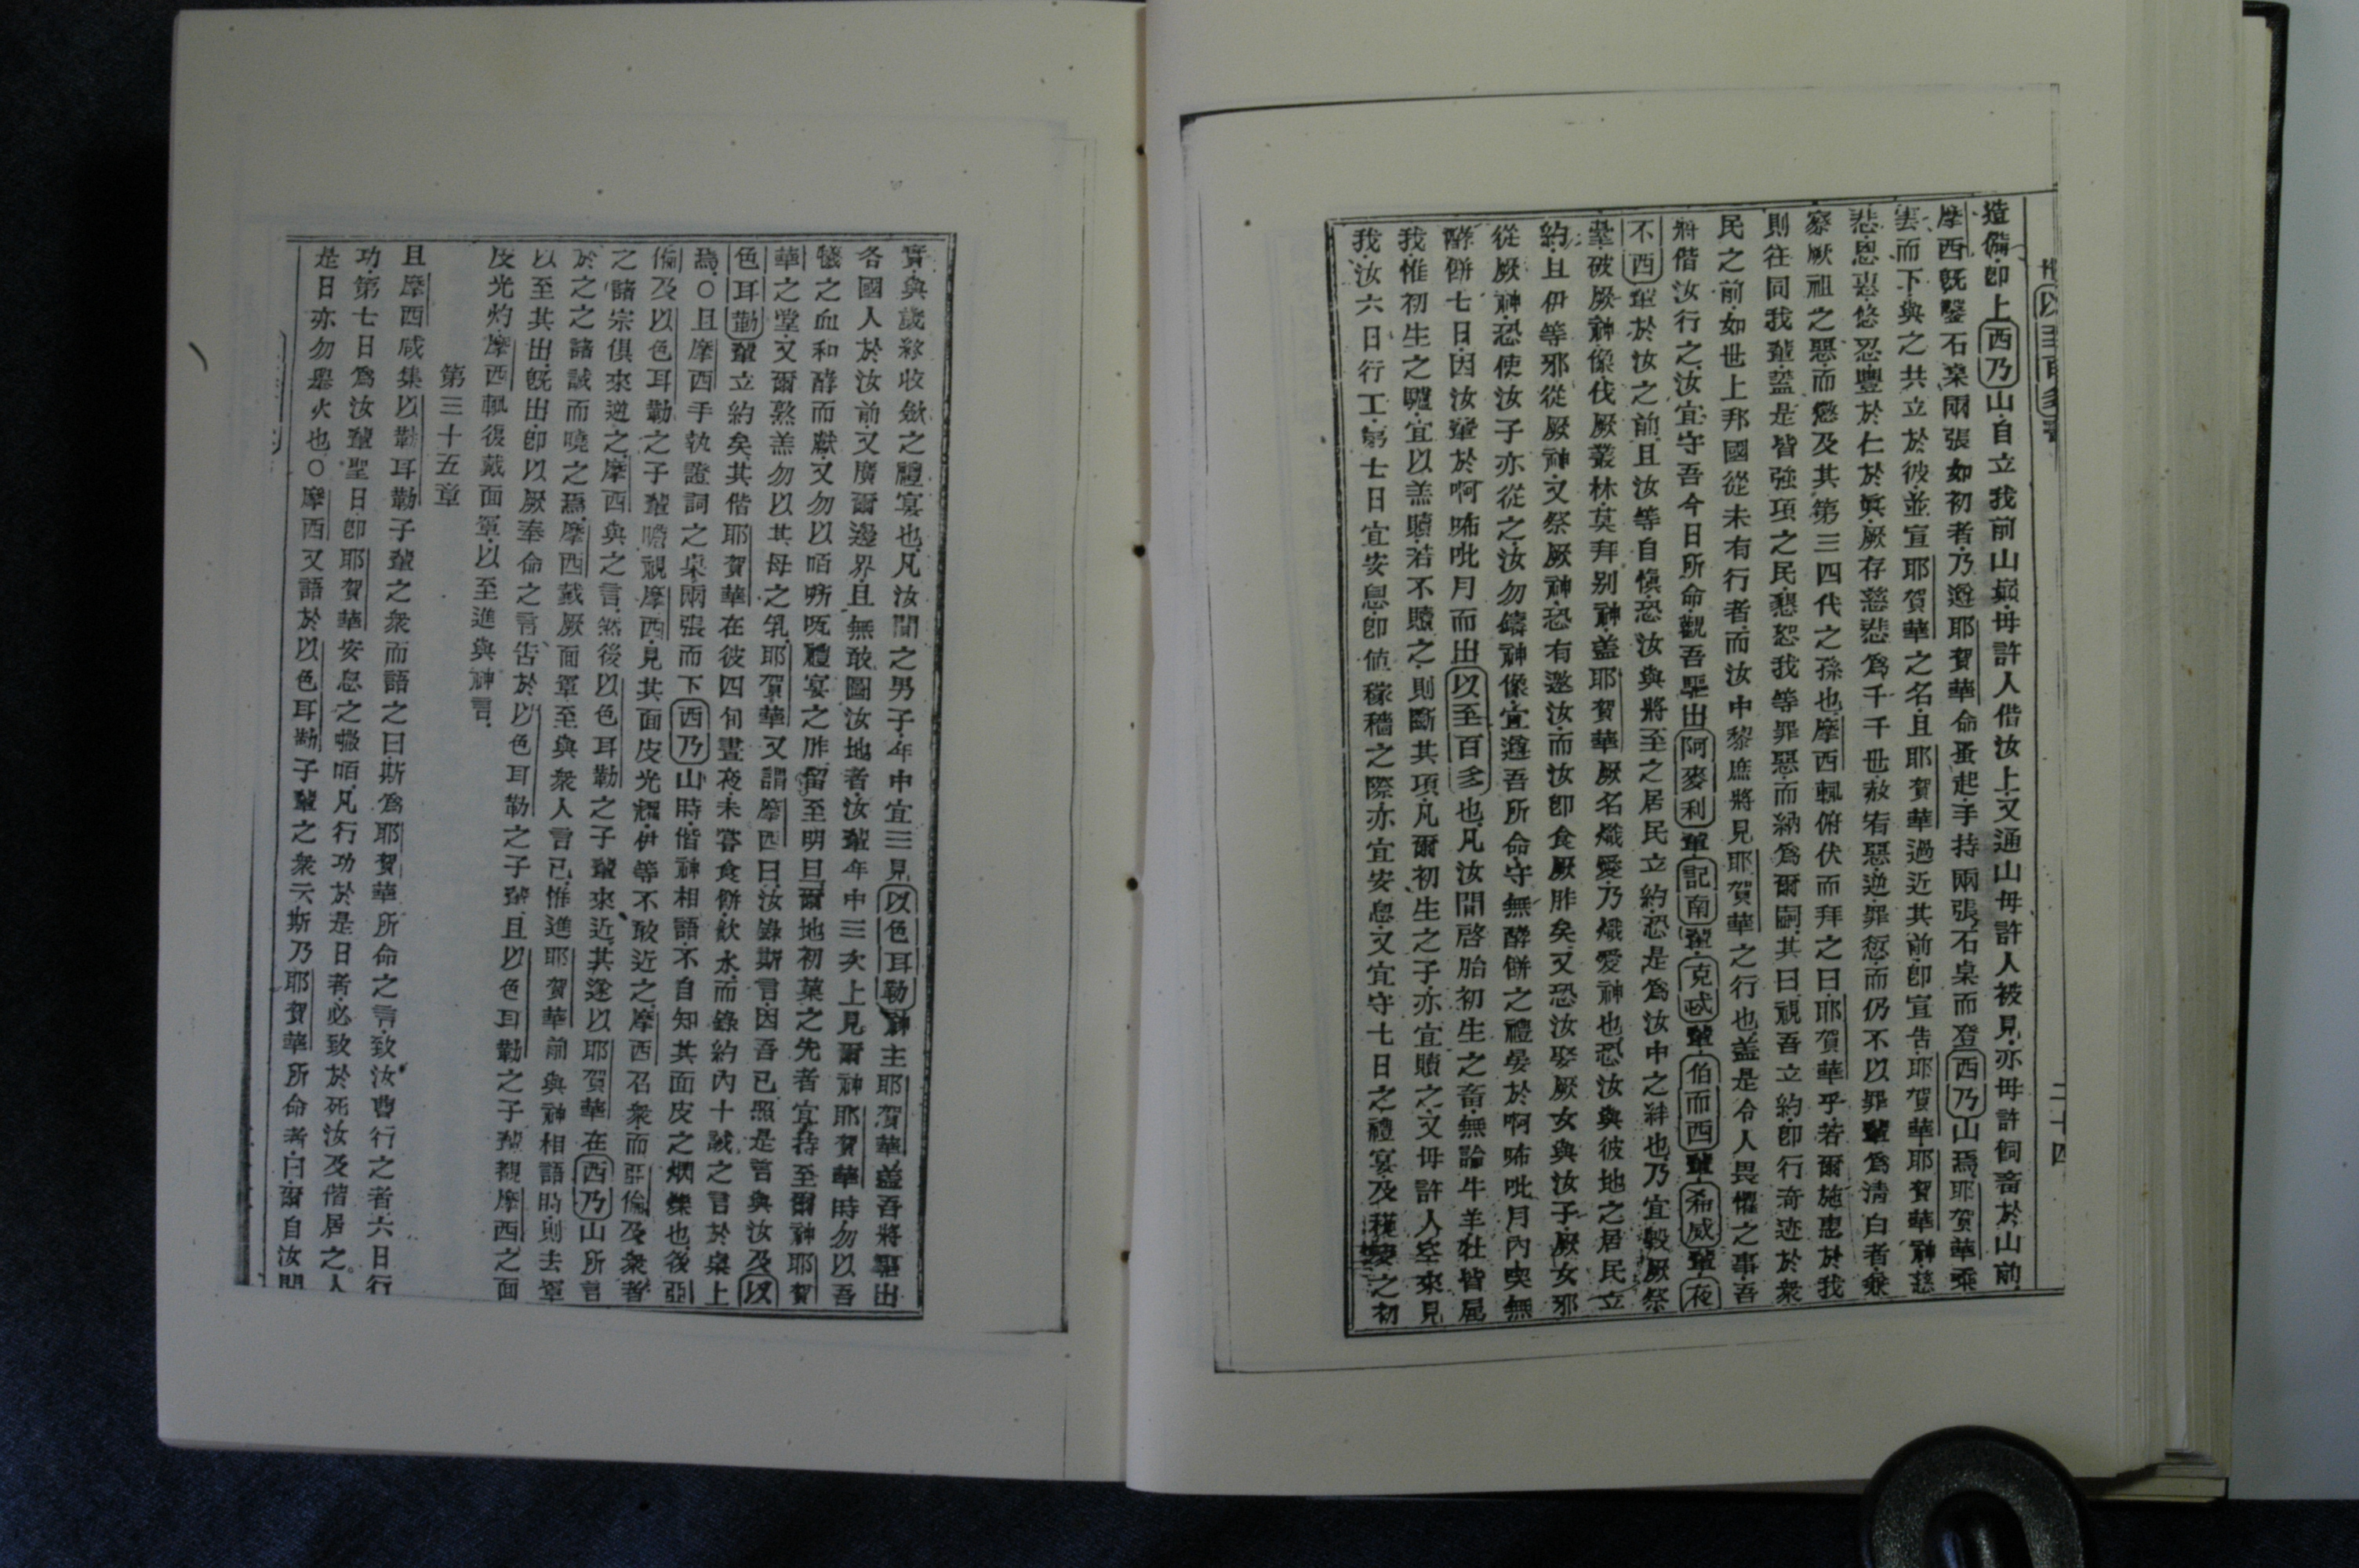 造備·卽上西乃山·自立我前山巔·毋許人偕汝上·又通山毋許人被見·亦毋許飼畜於山前·
摩西旣鑿石桌兩張如初者·乃遵耶賀華命蚤起·手持兩張石桌而登西乃山焉·耶賀華乘
雲而下·與之共立於彼·並宣耶賀華之名·且耶賀華過近其前·卽宣告·耶賀華·耶賀華神·慈
悲·恩惠·悠忍·豐於仁於眞·厥存慈悲爲千千世·赦宥惡逆罪愆·而仍不以罪輩爲淸白者·乘
察厥祖之惡·而懲及其第三四代之孫也·摩西輒俯伏而拜之曰·耶賀華乎·若爾施惠於我·
則往同我輩·蓋是皆強項之民·懇恕我等罪惡·而納爲爾嗣·其曰·視吾立約·卽行奇迹於衆
民之前·如世上邦國從未有行者·而汝中黎庶將見耶賀華之行也·蓋是令人畏懼之事·吾
將偕汝行之·汝宜守吾今日所命·觀吾驅出阿麥利輩·記南輩·克㖪輩·伯而西輩·希威輩·夜
不西輩於汝之前·且汝等自愼·恐汝與將至之居民立約·恐是爲汝中之絆也·乃宜毀厥祭
臺·破厥神像·伐厥叢林·莫拜别神·蓋耶賀華厥名熾愛·乃熾愛神也·恐汝與彼地之居民立
約·且伊等邪從厥神·又祭厥神·恐有邀汝·而汝卽食厥胙矣·又恐汝娶厥女與汝子·厥女邪
從厥神·恐使汝子亦從之·汝勿鑄神像·宜遵吾所命·守無酵餅之禮宴於啊咘吡月內·喫無
酵餅七日·因汝輩於啊咘吡月而出以至百多也·凡汝間啓胎初生之畜·無論牛羊牡皆屬
我·惟初生之驢·宜以羔贖·若不贖之·則斷其項·凡爾初生之子·亦宜贖之·又毋許人空來見
我·汝六日行工·第七日宜安息·卽値稼穡之際亦宜安息·又宜守七日之禮宴·及穫麥之初
實·與歲終收斂之禮宴也·凡汝間之男子·年中宜三見以色耳勒神主耶賀華·蓋吾將驅出
各國人於汝前·又廣爾邊界·且無敢圖汝地者·汝輩年中三次上見爾神耶賀華時·勿以吾
犧之血和酵而獻·又勿以咟㖫呒禮宴之胙·留至明旦·爾地初菓之先者·宜持至爾神耶賀
華之堂·又爾熬羔勿以其母之乳·耶賀華又謂摩西曰·汝錄斯言·因吾已照是言與汝及以
色耳勒輩立約矣·其偕耶賀華在彼四旬晝夜·未嘗食餅飮水·而錄約內十誡之言於桌上
焉·○且摩西手執證詞之桌兩張而下西乃山時·偕神相語·不自知其面皮之烱爍也·後亞
倫及以色耳勒之子輩·瞻視摩西·見其面皮光耀·伊等不敢近之·摩西召衆·而亞倫及衆者
之諸宗俱來逆之·摩西與之言·然後以色耳勒之子輩來近·其遂以耶賀華在西乃山所言
於之之諸誡而曉之焉·摩西戴厥面罩·至與衆人言已·惟進耶賀華前與神相語時·則去罩
以至其出·旣出·卽以厥奉命之言·告於以色耳勒之子輩·且以色耳勒之子輩觀摩西之面
皮光灼·摩西輒復戴面罩·以至進與神言·
第三十五章
且摩西咸集以勒耳勒子輩之衆而語之曰·斯爲耶賀華所命之言·致汝曹行之者·六日行
功·第七日爲汝輩聖日·卽耶賀華安息之㘓咟·凡行功於是日者·必致於死·汝及偕居之人
是日亦勿舉火也·○摩西又語於以色耳勒子輩之衆云·斯乃耶賀華所命者·曰·爾自汝間
二十四